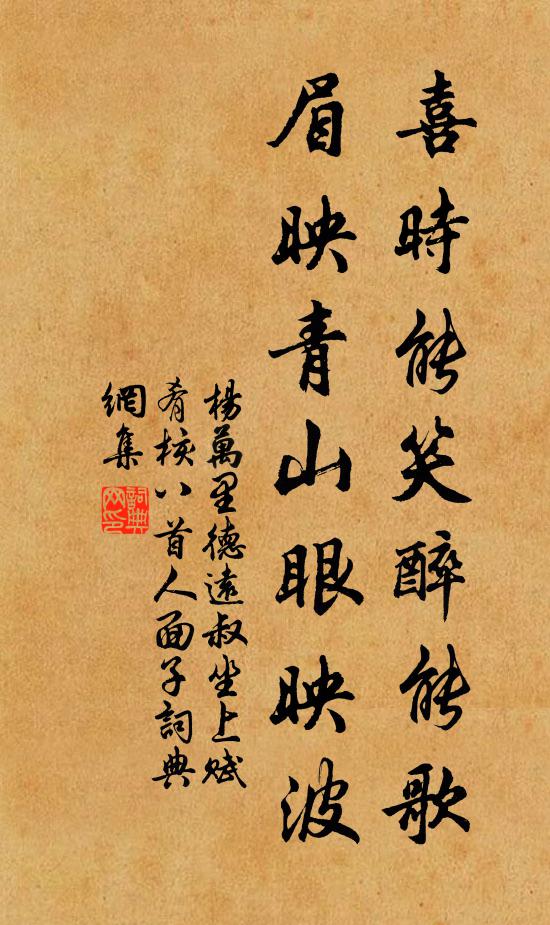 喜時能笑醉能歌
眉映青山眼映波
楊萬里德遠叔坐上賦
肴核八首人面子詞典
網集
詞典
网印